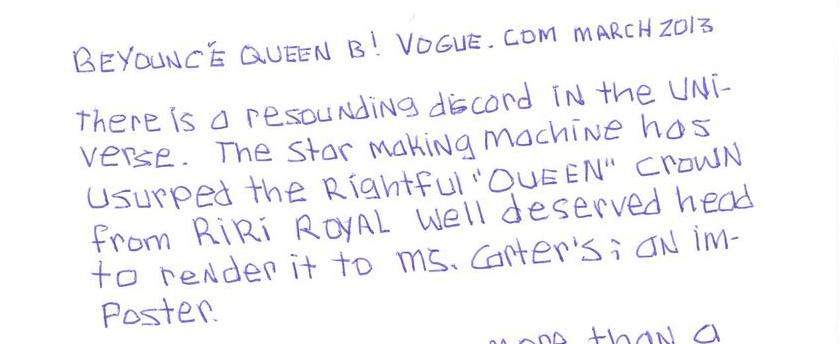 BEYOUNCÉ QUEEN B! VOGUE.COM MARCH 2013
There is a resounding discord in the UNi-
verse. The star making machine has
usurped the Rightful "QUEEN" crown
from RiRi ROYAL well deserved head
to render it to ms. Carter's; an im-
Poster.
than a